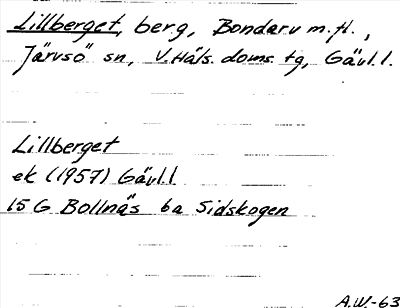 Lillberget, berg, Bondarv m.fl.,
Järvsö sn, V. Häls. doms. tg, Gävl.l.
Lillberget
ek (1957) Gävl.l
15 G Bollnäs 6a Sidskogen
A.W.-63